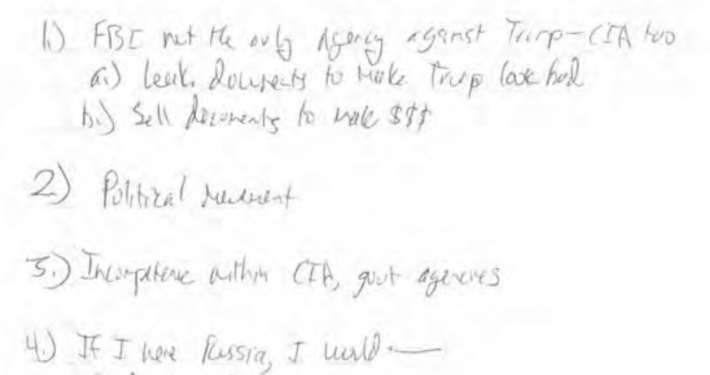 1.) FBI not the only Agency against Trump - CIA too
a.) Leak documents to Make Trump look bad
b.) Sell documents to make $$$
2) Political
3.) Incompetence within CIA, govt agencies
4.) If I were Russia, I would —